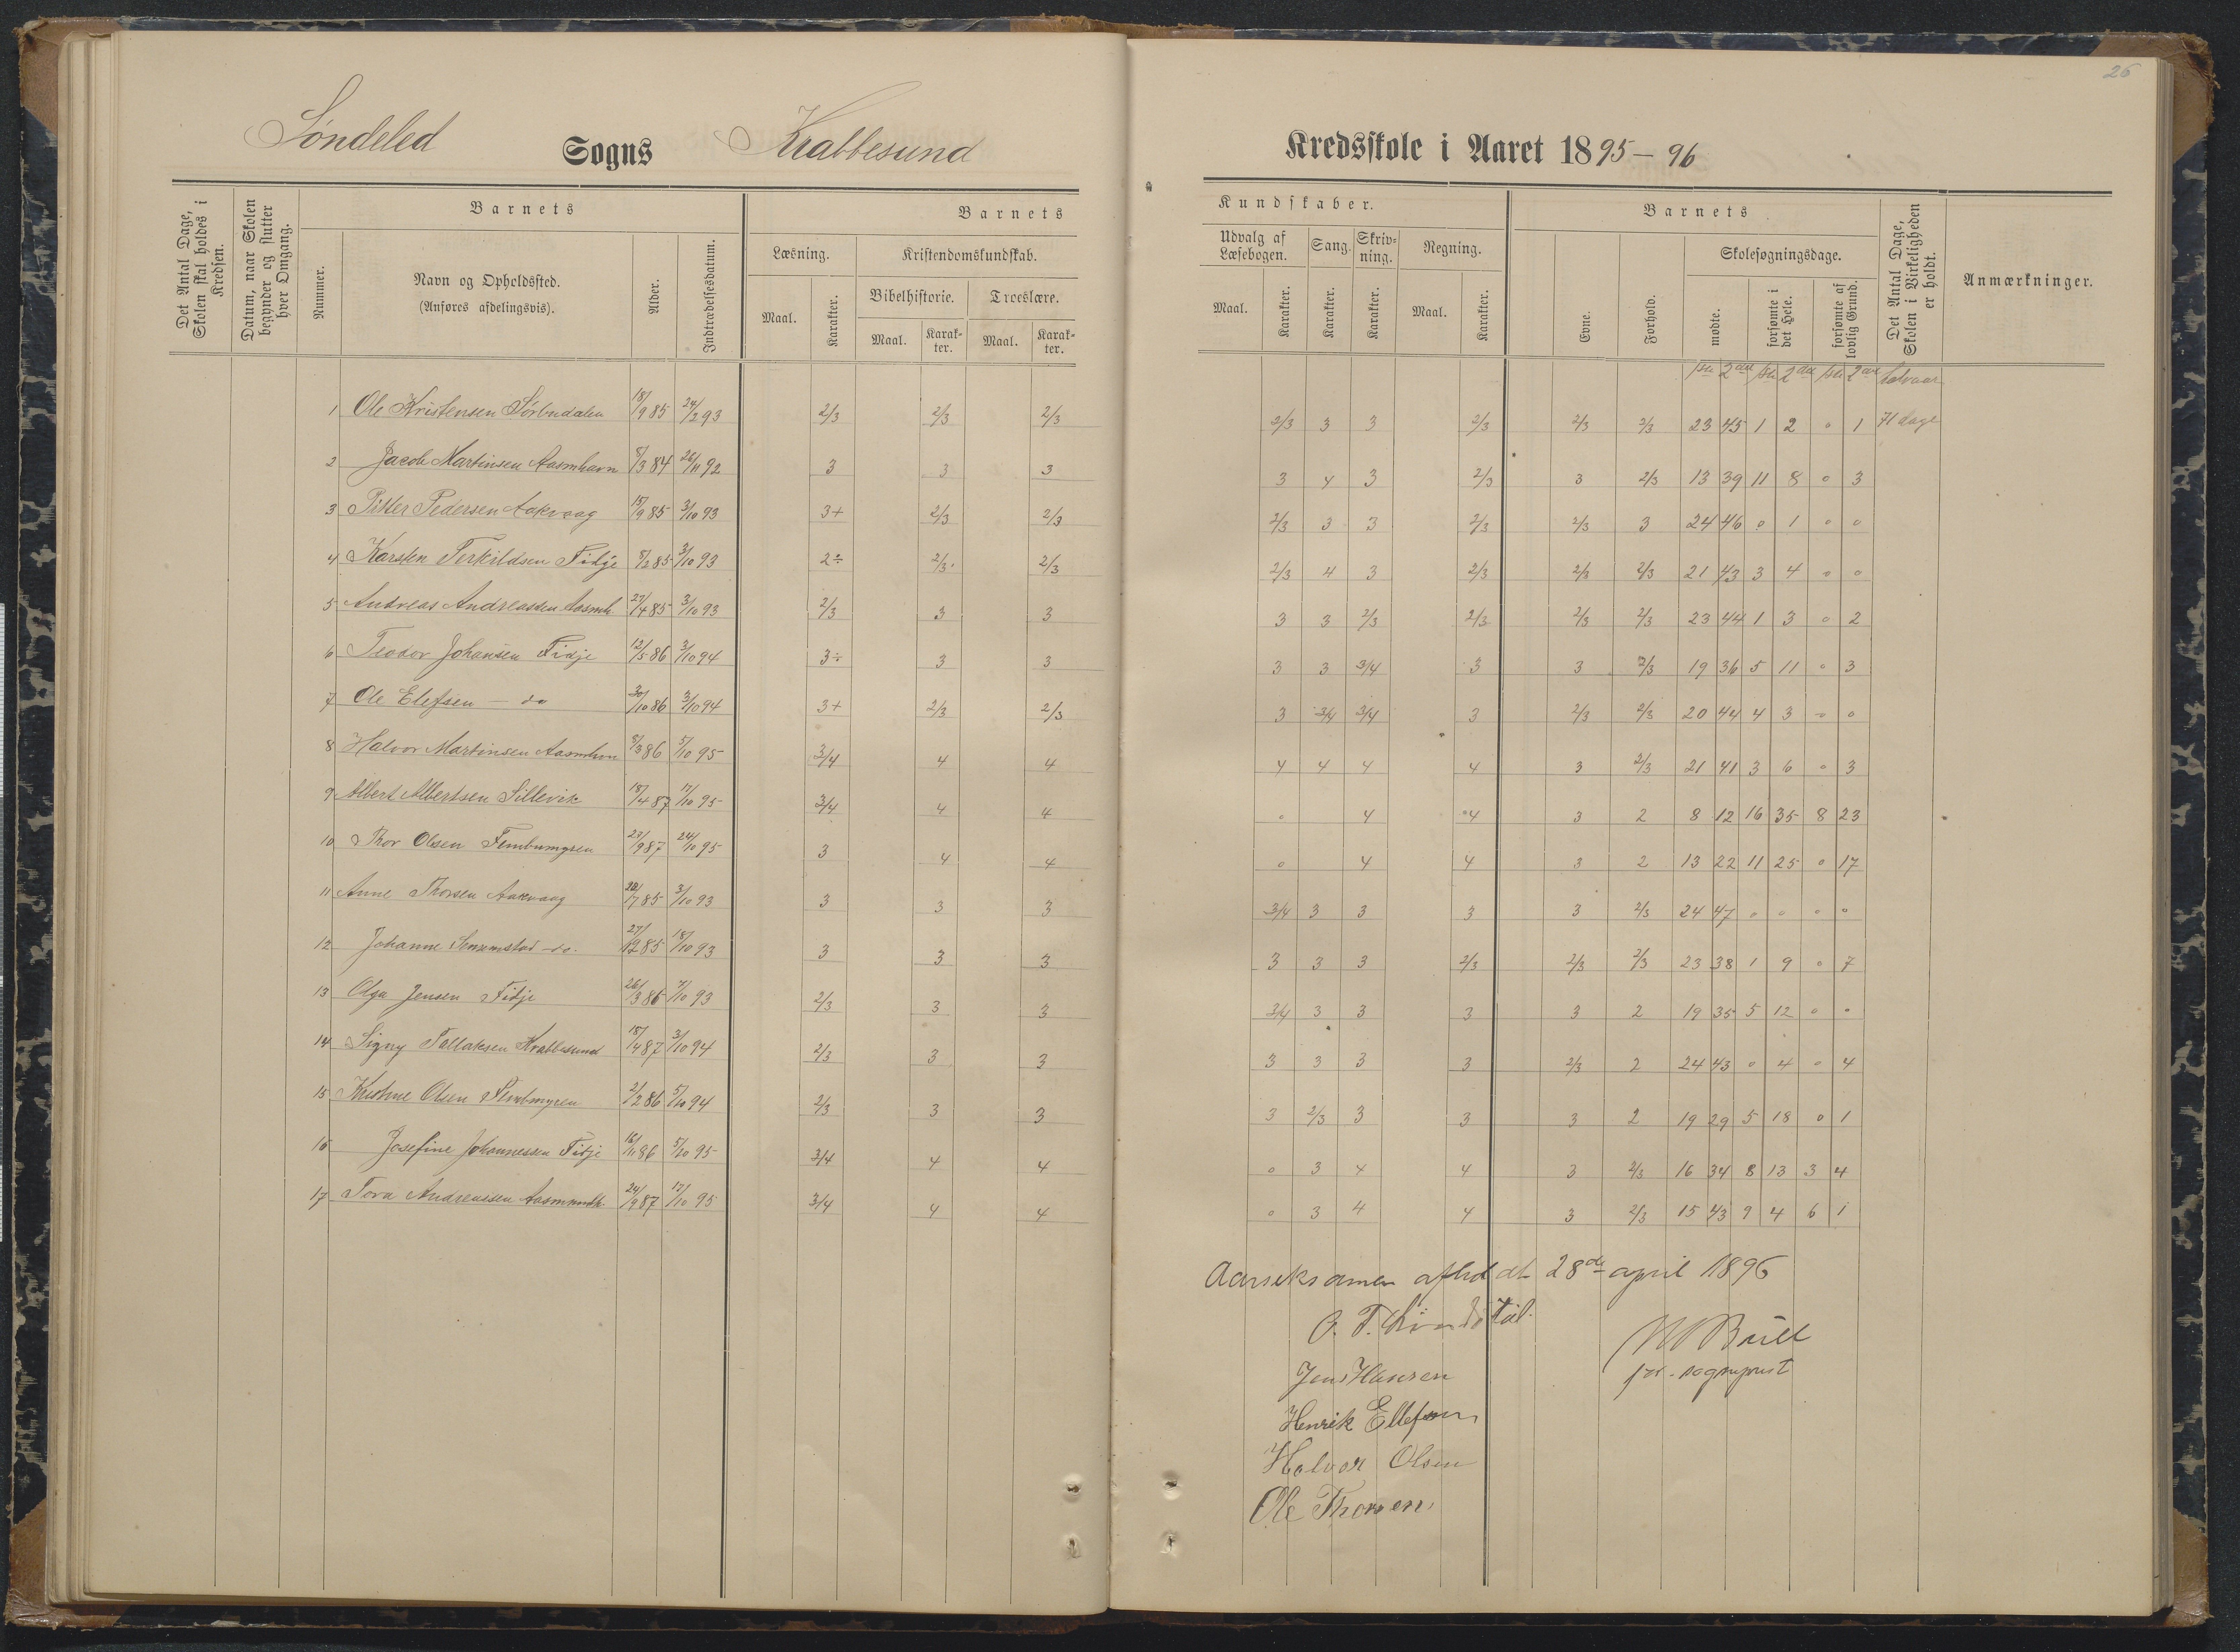 26
Søndeled Sogns Krabbesund Kredsskole i Aaret 1895-96
Det Antal Dage, Skolen skal holdes i Kredsen.
Datum, naar Skolen begynder og slutter hver Omgang.
Barnets
Nummer.
Navn og Opholdssted.
(Anføres afdelingsvis).
Alder.
Indtrædelsesdatum.
Barnets Kundskaber.
Læsning.
Maal. Karakter.
Kristendomskundskab.
Bibelhistorie. Troeslære.
Maal. Karakter. Maal. Karakter.
Udvalg af Læsebogen. Sang. Skrivning. Regning.
Maal. Karakter. Karakter. Karakter. Maal. Karakter.
Barnets
Evne. Forhold.
Skolesøgningsdage.
mødte. forsømte i det Hele. forsømte af lovlig Grund.
Det Antal Dage, Skolen i Virkeligheden er holdt.
Anmærkninger.
1 Ole Kristensen Sørbudalen 18/9 85 24/2 93 2/3 2/3 2/3 2/3 3 3 2/3 2/3 2/3 23 45 1 2 0 1 71 dage
2 Jacob Martinsen Aasmhavn 8/3 84 26/11 92 3 3 3 3 4 3 2/3 3 2/3 13 39 11 8 0 3
3 Pitter Pedersen Aakvaag 15/9 85 3/10 93 3+ 2/3 2/3 2/3 3 3 2/3 2/3 3 24 46 0 1 0 0
4 Karsten Terkildsen Fidje 8/2 85 3/10 93 2÷ 2/3 2/3 2/3 4 3 2/3 2/3 2/3 21 43 3 4 0 0
5 Andreas Andreassen Aasmh. 27/4 85 3/10 93 2/3 3 3 3 3 2/3 2/3 2/3 2/3 23 44 1 3 0 2
6 Teodor Johansen Fidje 12/5 86 3/10 94 3÷ 3 3 3 3 3/4 3 3 2/3 19 36 5 11 0 3
7 Ole Elefsen - do 30/10 86 3/10 94 3+ 2/3 2/3 3 3/4 3/4 3 2/3 2/3 20 44 4 3 0 0
8 Halvor Martinsen Aasmhvn 8/3 86 5/10 95 3/4 4 4 4 4 4 4 3 2/3 21 41 3 6 0 3
9 Albert Albertsen Sillevik 18/4 87 17/10 95 3/4 4 4 0 4 4 3 2 8 12 16 35 8 23
10 Thor Olsen 23/9 87 24/10 95 3 4 4 0 4 4 3 2 13 22 11 25 0 17
11 Anne Thorsen Aakvaag 20/7 85 3/10 93 3 3 3 3/4 3 3 3 3 2/3 24 47 0 0 0 0
12 Johanne - do. 27/12 85 18/10 93 3 3 3 3 3 3 2/3 2/3 2/3 23 38 1 9 0 7
13 Olga Jensen Fidje 26/3 86 7/10 93 2/3 3 3 3/4 3 3 3 3 2 19 35 5 12 0 0
14 Signy Tallaksen Krabbesund 18/4 87 3/10 94 2/3 3 3 3 3 3 3 2/3 2 24 43 0 4 0 4
15 Kristine Olsen 2/2 86 5/10 94 2/3 3 3 3 2/3 3 3 3 2 19 29 5 18 0 1
16 Josefine Johannessen Fidje 16/11 86 5/10 95 3/4 4 4 0 3 4 4 3 2/3 16 34 8 13 3 4
17 Tora Andreassen 24/9 87 17/10 95 3/4 4 4 0 3 4 4 3 2/3 15 43 9 4 6 1
Aarseksamen afholdt 28de april 1896
Jens Hansen
Bull
sogneprest
Henrik Ellefsen
Halvor Olsen
Ole Thorsen